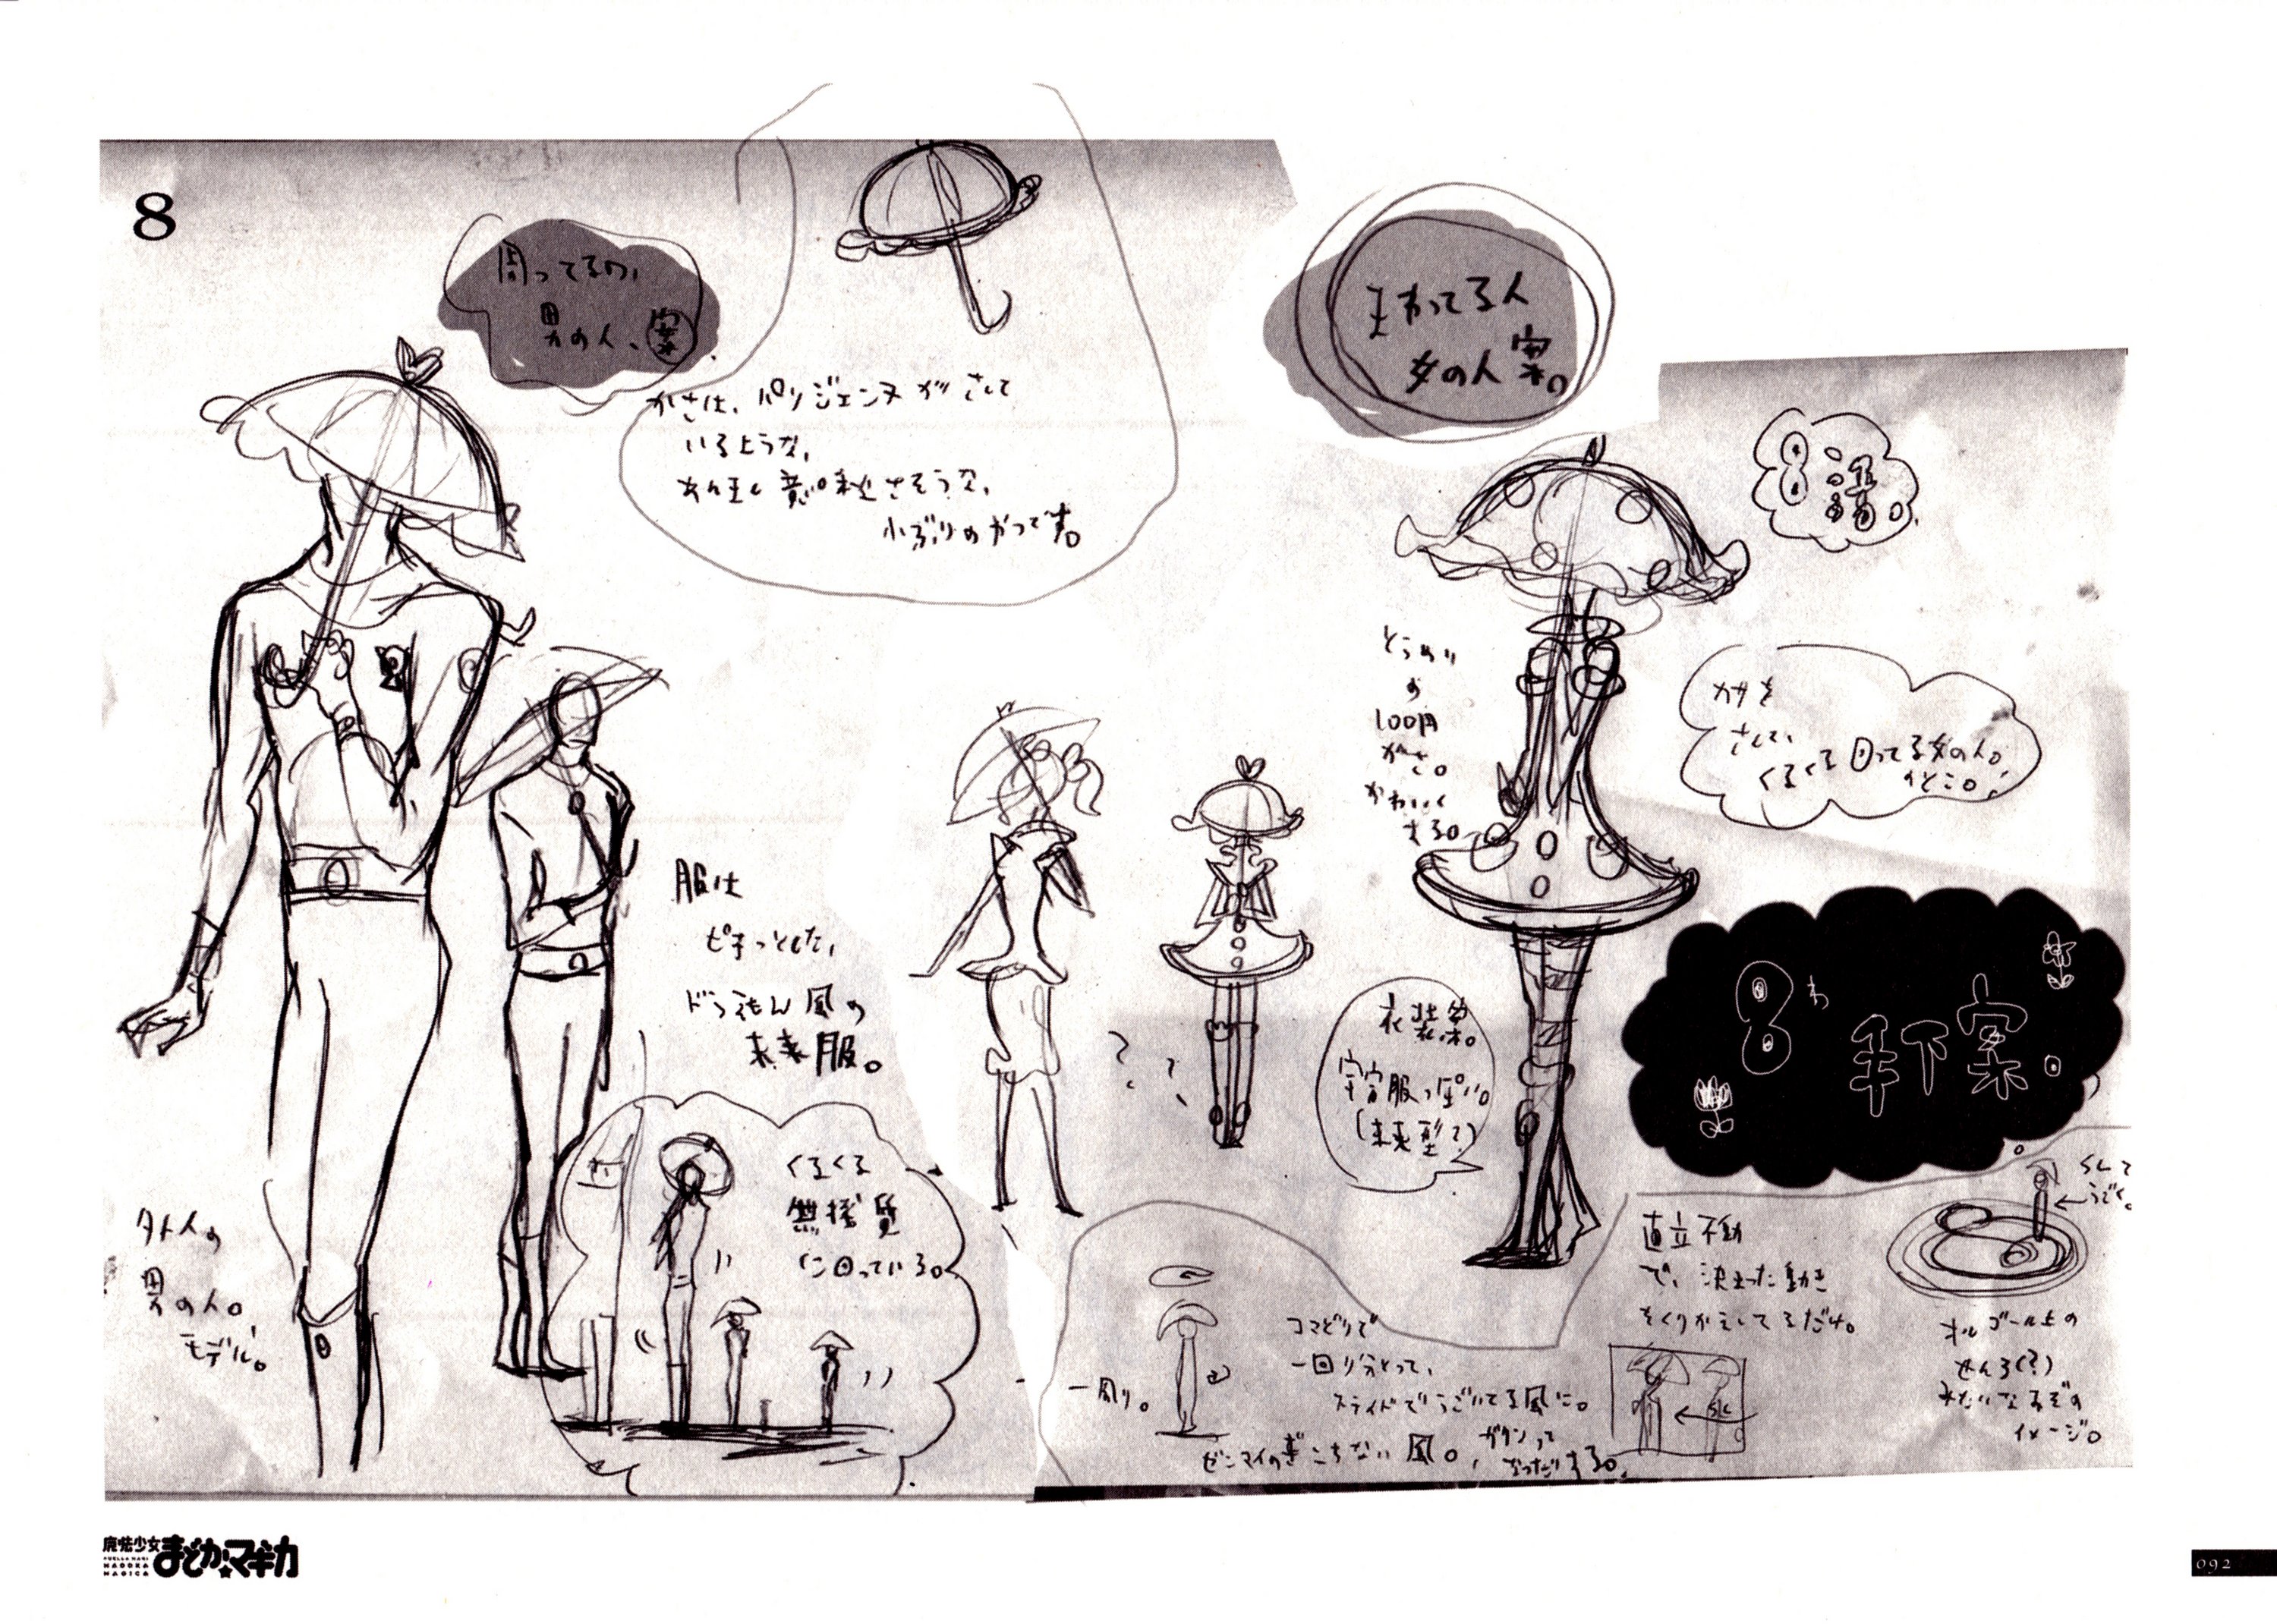 8
周ってるの、
男の人、案。
かさは、パリジェンヌが さして
いるような、
あんまし意味なさそうな、
小ぶりのかつです。
まわってる人
女の人案。
8話。
とうめい
の
100円
がさ。
かわいく
する。
カサを
さして、
くるくる回ってる女の人。
服は
ピチっとした、
ドラえもん風の
未来服。
衣装案。
宇宙服っぽい。
(未来型?)
8わ
手下案。
外人の
男の人。
モデル。
くるくる
無機質
に回っている。
??
一周り。
コマどりで
一回り分とって、
スライドでうごいてる風に。
ゼンマイのぎこちない風。
直立不動
で、決まった動き
をくりかえしてるだけ。
SLで
うごく。
オルゴール上の
せんろ(?)
みたいなみぞの
イメージ。
SL
魔法少女
まどか☆マギカ
PUELLA MAGI
MADOKA
MAGICA
092